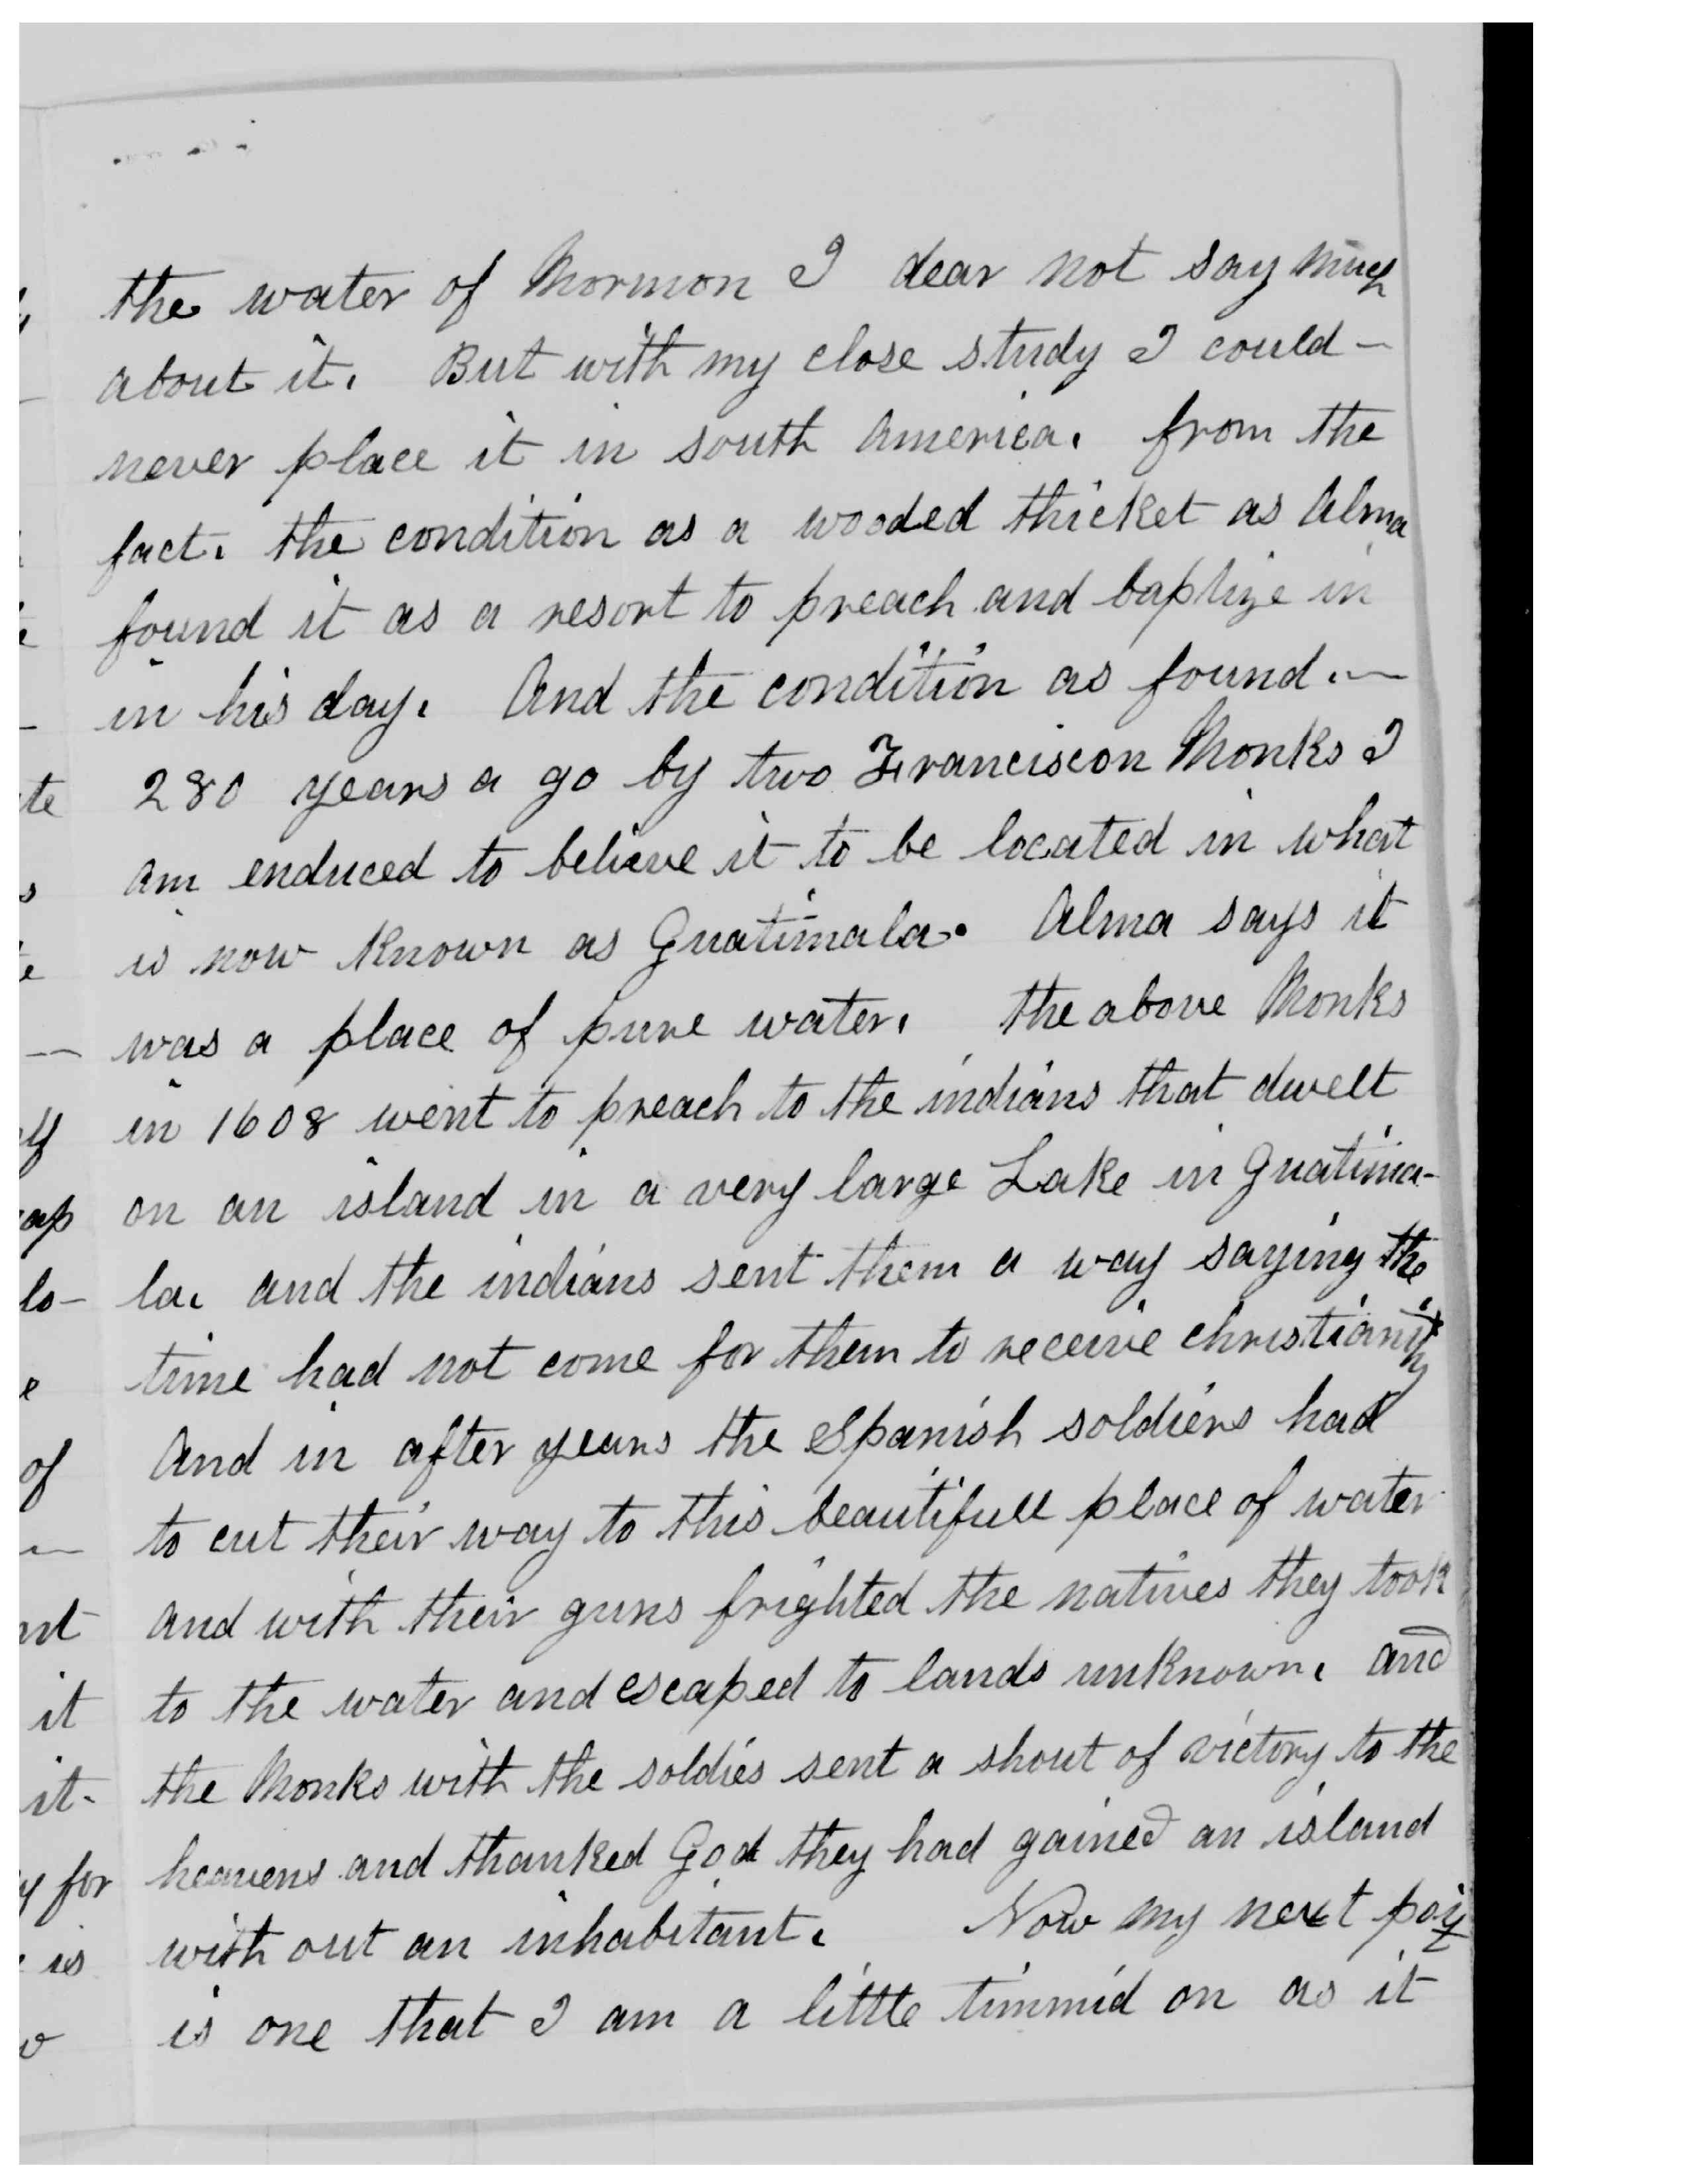 the water of Mormon I dear not say much
about it. But with my close study I could -
never place it in south America. from the
fact. the condition as a wooded thicket as Alma
found it as a resort to preach and baptize in
in his day. And the condition as found. -
280 years a go by two Franciscon Monks I
am enduced to believe it to be located in what
is now Known as Guatimala. Alma says it
was a place of pure water. the above Monks
in 1608 went to preach to the indians that dwelt
on an island in a very large Lake in Guatima-
la. and the indians sent them a way saying the
time had not come for them to receive christianity
And in after years the Spanish soldiers had
to cut their way to this beautifull place of water
and with their guns frighted the natives they took
to the water and escaped to lands unknown. and
the Monks with the soldies sent a shout of victory to the
heavens and thanked God they had gained an island
with out an inhabitant. Now my next
is one that I am a little timmid on as it